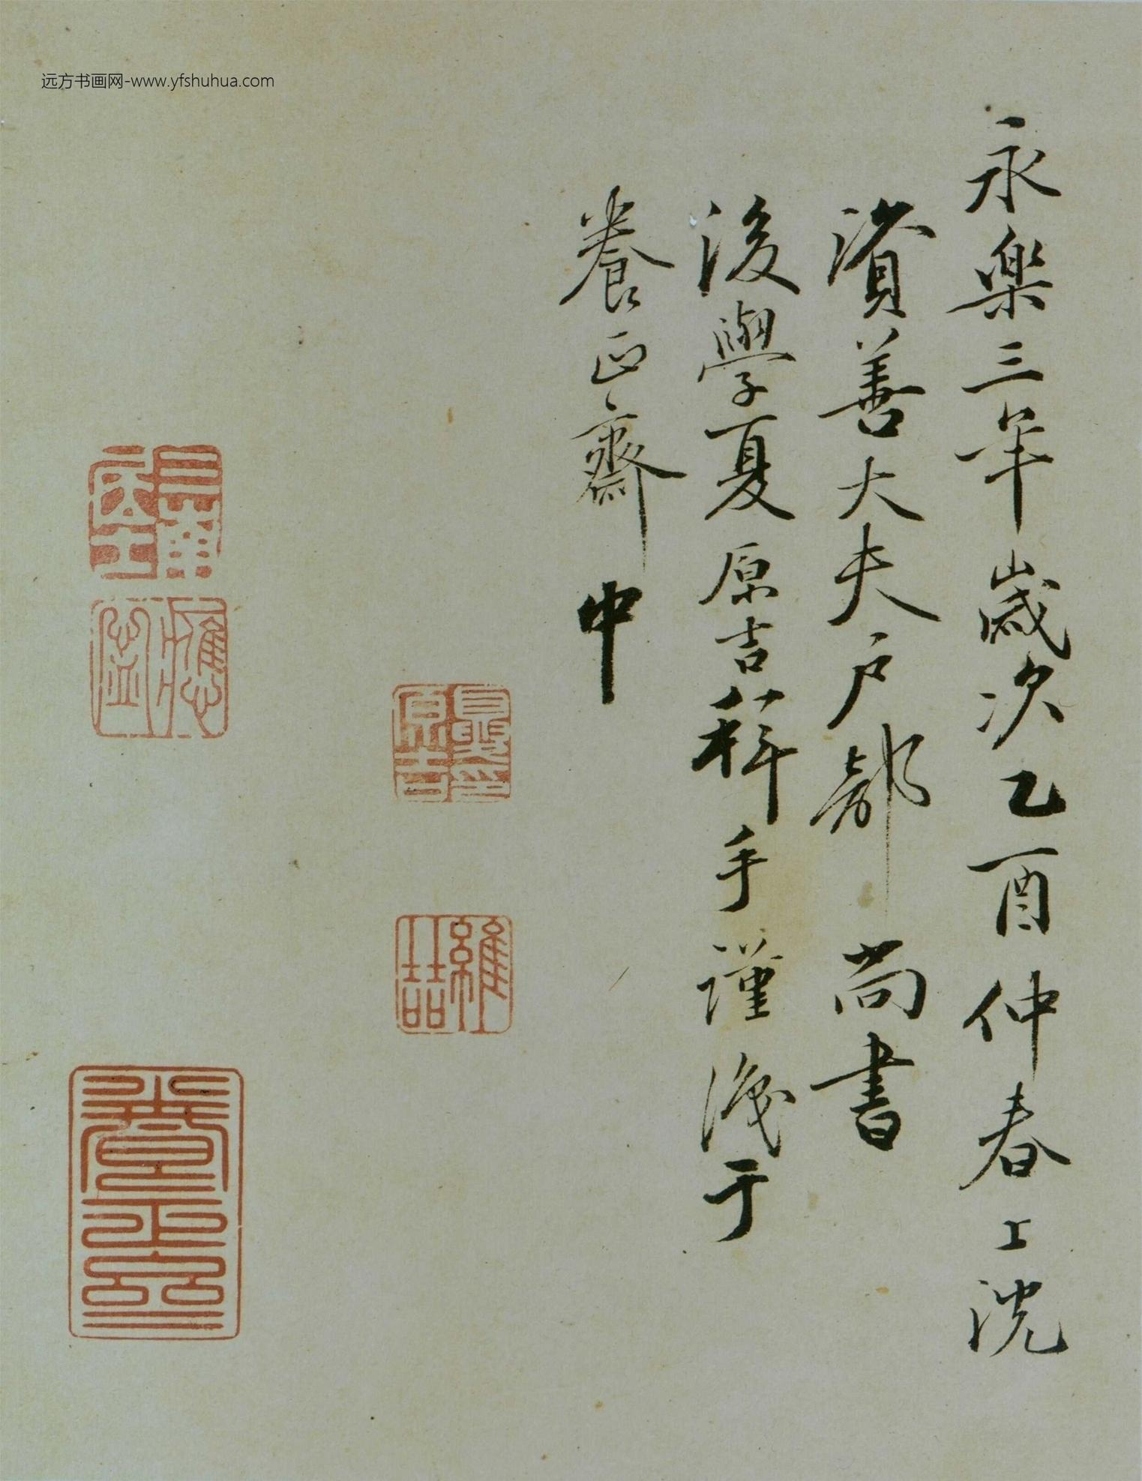 远方书画网-www.yfshuhua.com
永樂三年歲次乙酉仲春上浣
資善大夫户部尚書
後學夏原吉拜手謹識于
養正齋中
夏原吉印
維喆